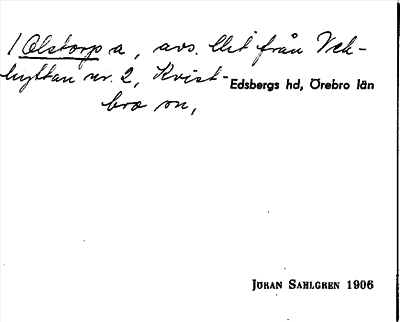 / Olstorp a, avs. lht från Vek-
hyttan nr. 2, Kvist-
bro sn,
Edsbergs hd, Örebro län
JÖRAN SAHLGREN 1906